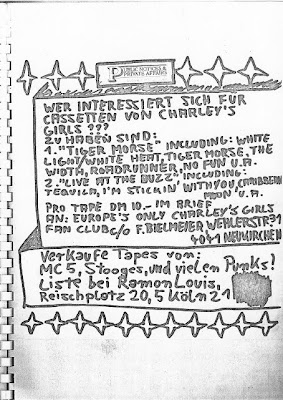 PUBLIC NOTICES &
PRIVATE AFFAIRS
WER INTERESSIERT SICH FÜR
CASSETTEN VON CHARLEY'S
GIRLS ???
ZU HABEN SIND:
1. "TIGER MORSE" INCLUDING: WHITE
LIGHT/WHITE HEAT, TIGER MORSE, THE
WIDTH, ROADRUNNER, NO FUN U.A.
2. "LIVE AT THE BUZZ" INCLUDING:
TEQUILA, I'M STICKIN' WITH YOU, CARIBBEAN
MOON U.A.
PRO TAPE DM 10.- IM BRIEF
AN: EUROPE'S ONLY CHARLEY'S GIRLS
FAN CLUB c/o F. BIELMEIER, WEHLERSTR 31
4041 NEUKIRCHEN
Verkaufe Tapes von:
MC 5, Stooges, und vielen Punks!
Liste bei Ramon Louis,
Reischplatz 20, 5 Köln 21